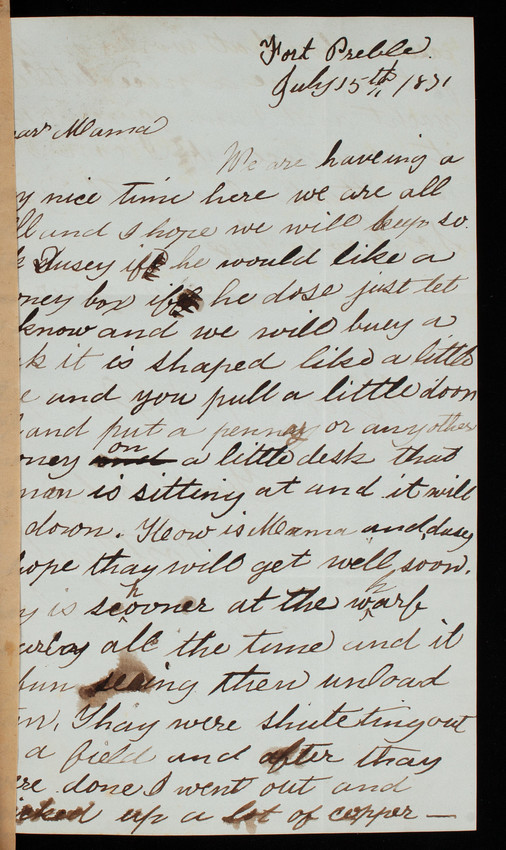 Fort Preble.
July 15th 1871
ear Mama
We are haveing a
y nice time here we are all
ll and I hope we will keep so.
k Dusey if he would like a
oney box if he dose just let
know and we will buey a
k it is shaped like a little
e and you pull a little doon
and put a penney or any other
oney on a little desk that
man is sitting at and it will
down. How is Mama and dusey
hope thay will get well soon.
y is schooner at the wharf
all the time and it
fun seeing then unload
Thay were shuteting out
a field and after thay
re done I went out and
icked up a lot of copper —